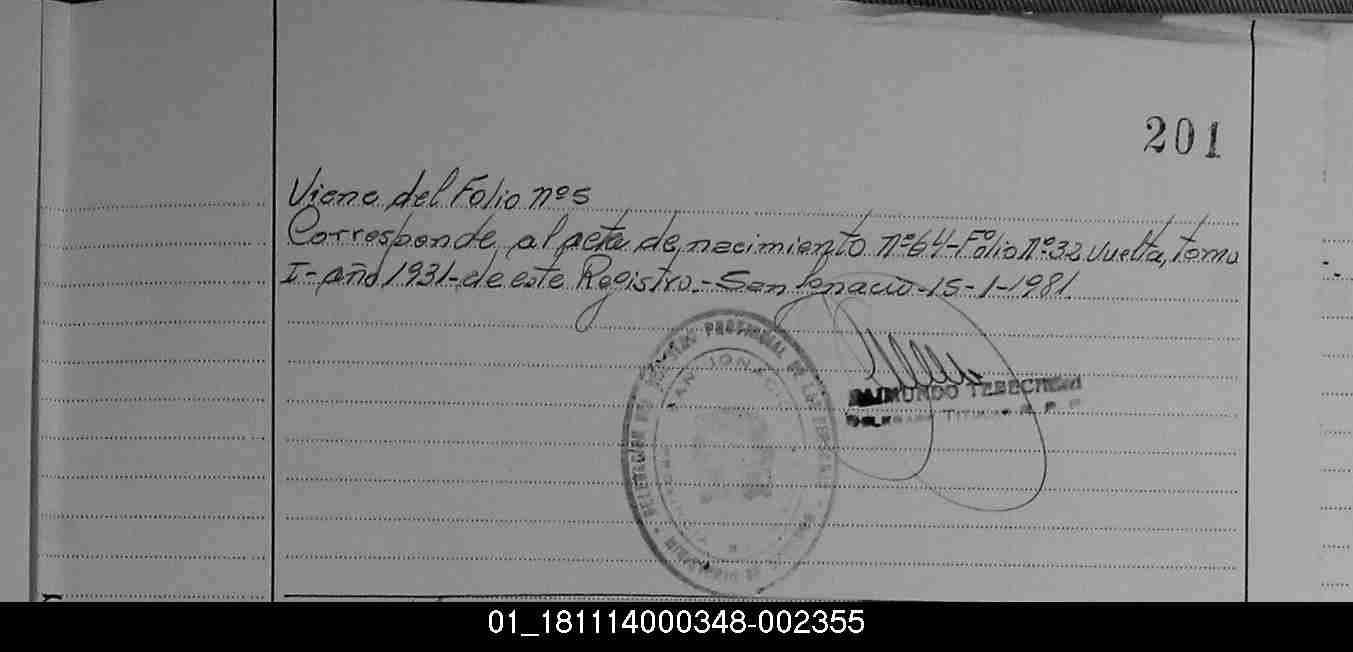 201
Viene del Folio nº 5
Corresponde al acta de nacimiento nº 64 - Folio Nº 32 vuelta, tomo
I - año 1931 - de este Registro. - San Ignacio - 15 - 1 - 1981
PROVINCIAL DE LAS
SAN IGNACIO
RAIMUNDO
TITULAR R. P. P.
01_181114000348-002355